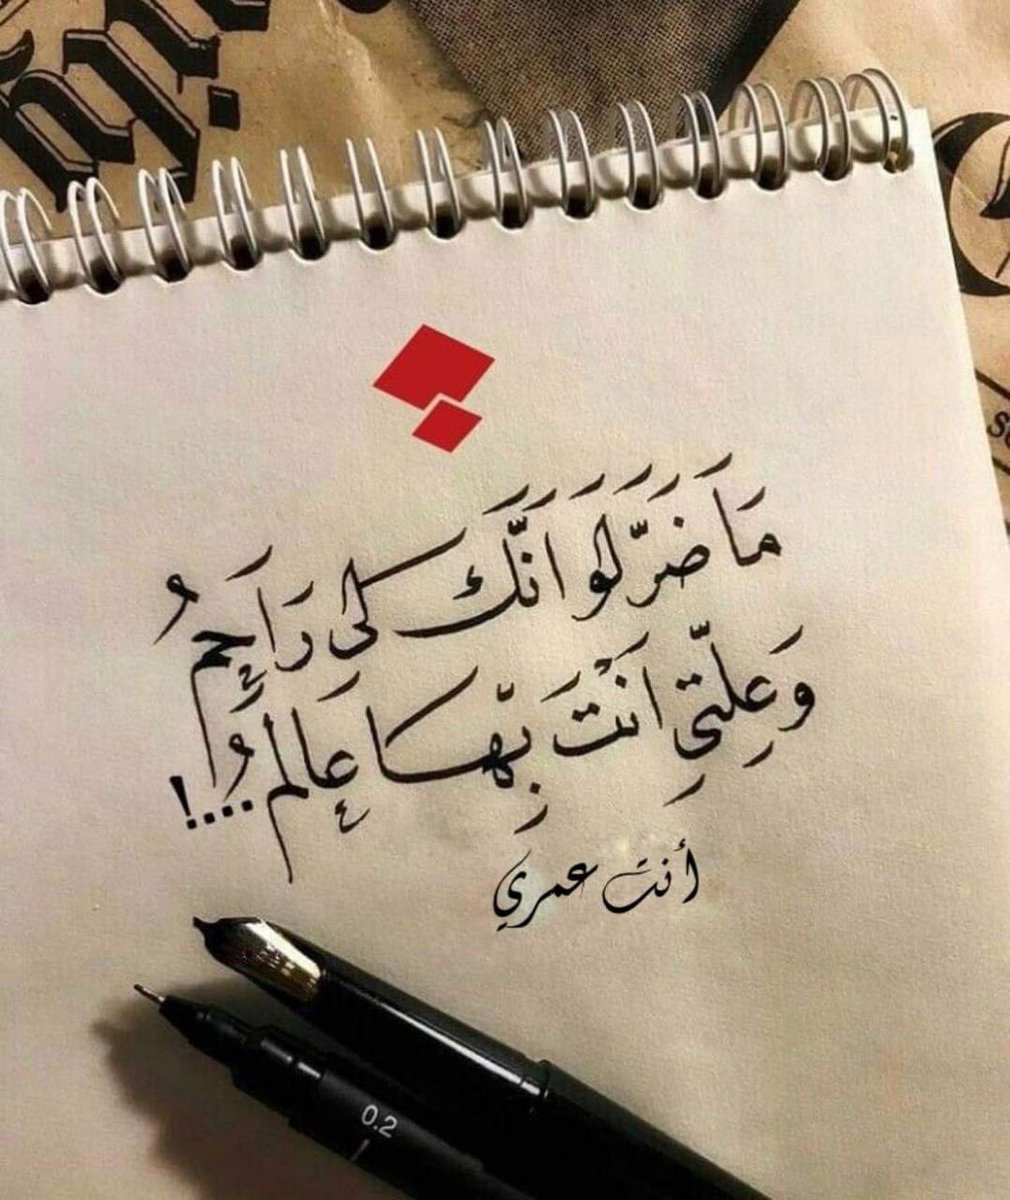 مَا ضَرَّ لَو اَنَّكَ لِى رَاحِمُ
وَعِلَّتِي اَنْتَ بِهَا عَالِمُ....!
أنت عمري
0.2